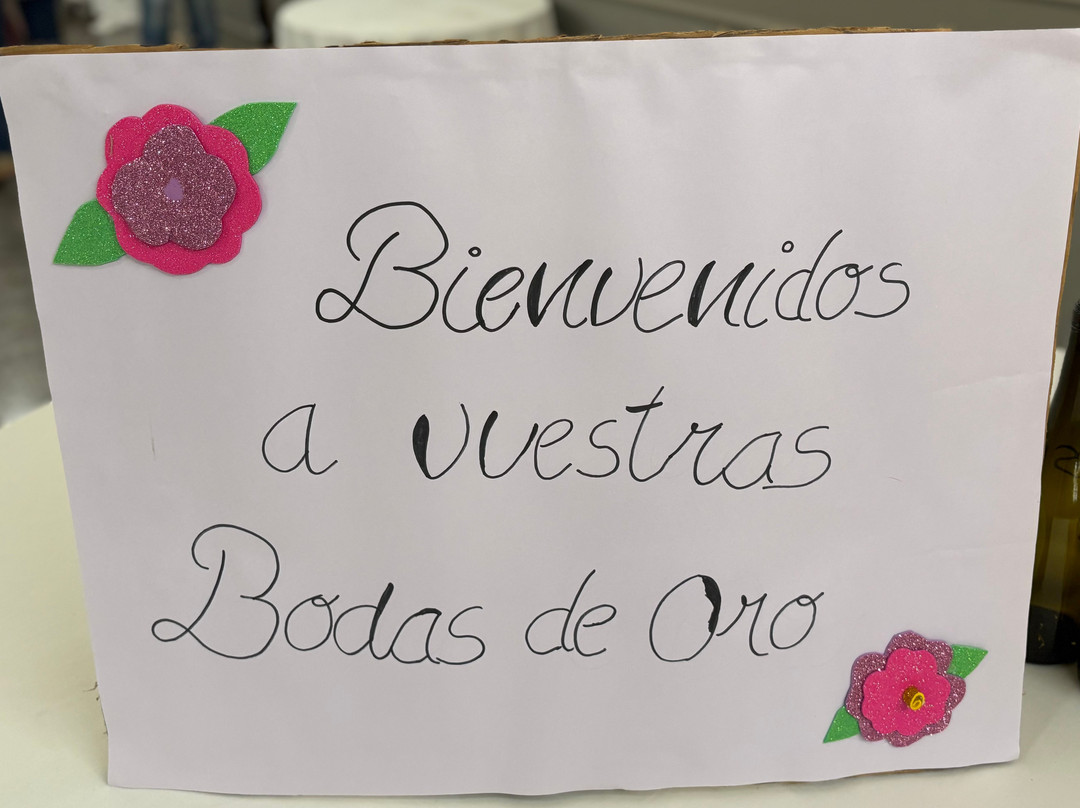 Bienvenidos
a vuestras
Bodas de Oro